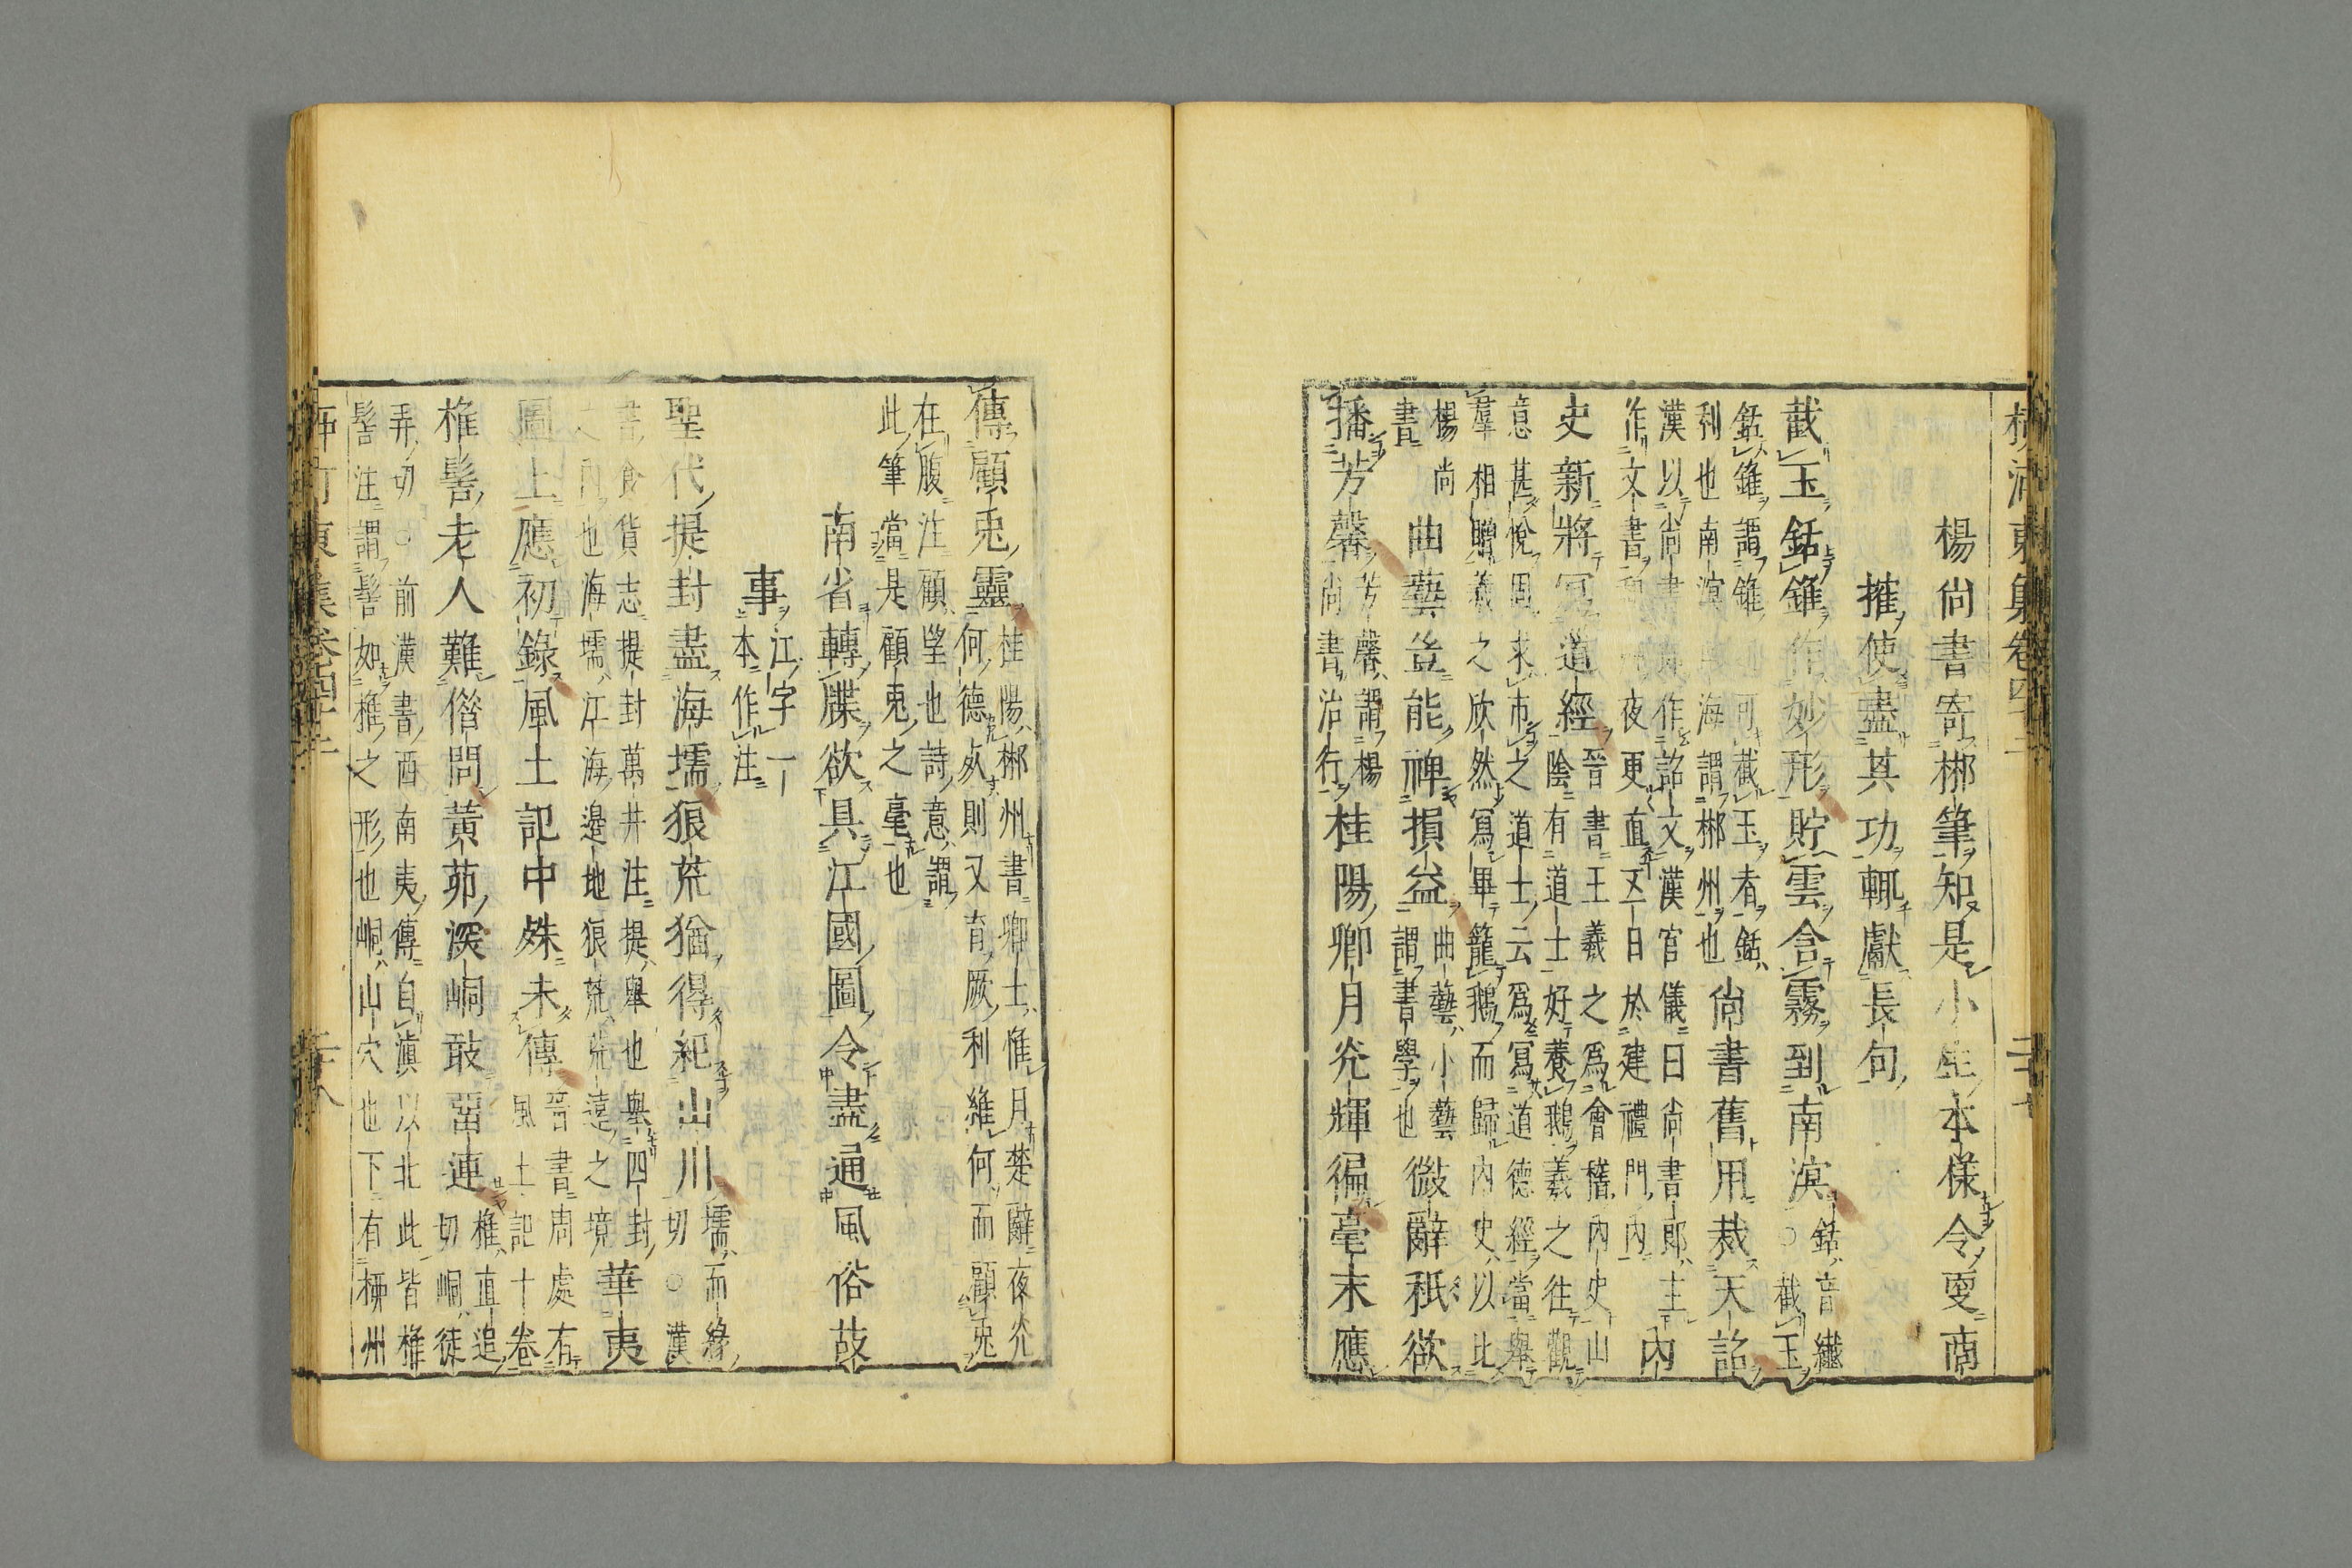 楊尚書寄郴筆知是小生本樣令更商
搉使盡其功輒獻長句
截玉銛錐作妙形貯雲含霧到南溟銛音纖○截玉
銛錐謂錐也可截玉者銛
利也南溟南海謂郴州也尚書舊用裁天詔
漢以尚書郎作詔文漢官儀曰尚書郎主
作文書夜更直五日於建禮門內內
史新將寫道經晉書王羲之為會稽內史山
陰有道士好養鵝羲之往觀
意甚悅固求市之道士云為寫道德經當舉
羣相贈羲之欣然寫畢籠鵝而歸內史以比
楊尚
書曲藝豈能裨損益曲藝小藝
謂書學也微辭秖欲
播芳馨芳馨謂楊
尚書治行桂陽卿月光輝徧毫末應
傳顧兎靈桂陽郴州書卿士惟月楚辭夜光
何德死則又育厥利維何而顧兎
在腹注顧望也詩意謂
此筆當是顧兎之毫也
南省轉牒欲具江國圖令盡通風俗故
事江字一
本作注
聖代提封盡海壖狼荒猶得紀山川壖而緣
切○漢
書食貨志提封萬井注提舉也舉四封
之內也海壖江海邊地狼荒荒遠之境華夷
圖上應初錄風土記中殊未傳晉書周處有
風土記十卷
椎髻老人難借問黃茆深峒敢留連椎直追
切峒徒
弄切○前漢書西南夷傳自滇以北此皆椎
髻注謂髻如椎之形也峒山穴也下有柳州